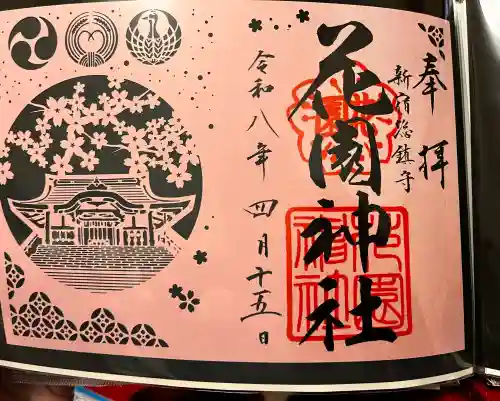 奉拝
新宿総鎮守
花園神社
令和八年四月十五日